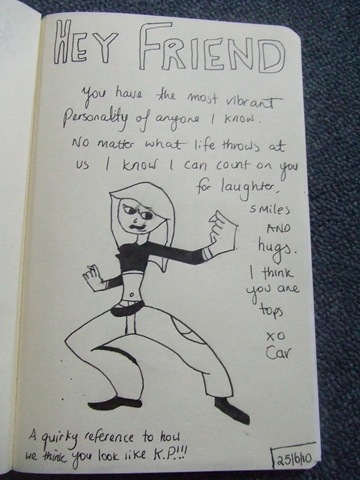 HEY FRIEND
You have the most vibrant
Personality of anyone I know.
No matter what life throws at
us I know I can count on you
for laughter,
smiles
AND
hugs.
I think
you are
tops
xo
Car
A quirky reference to how
we think you look like K.P!!!
25/6/10